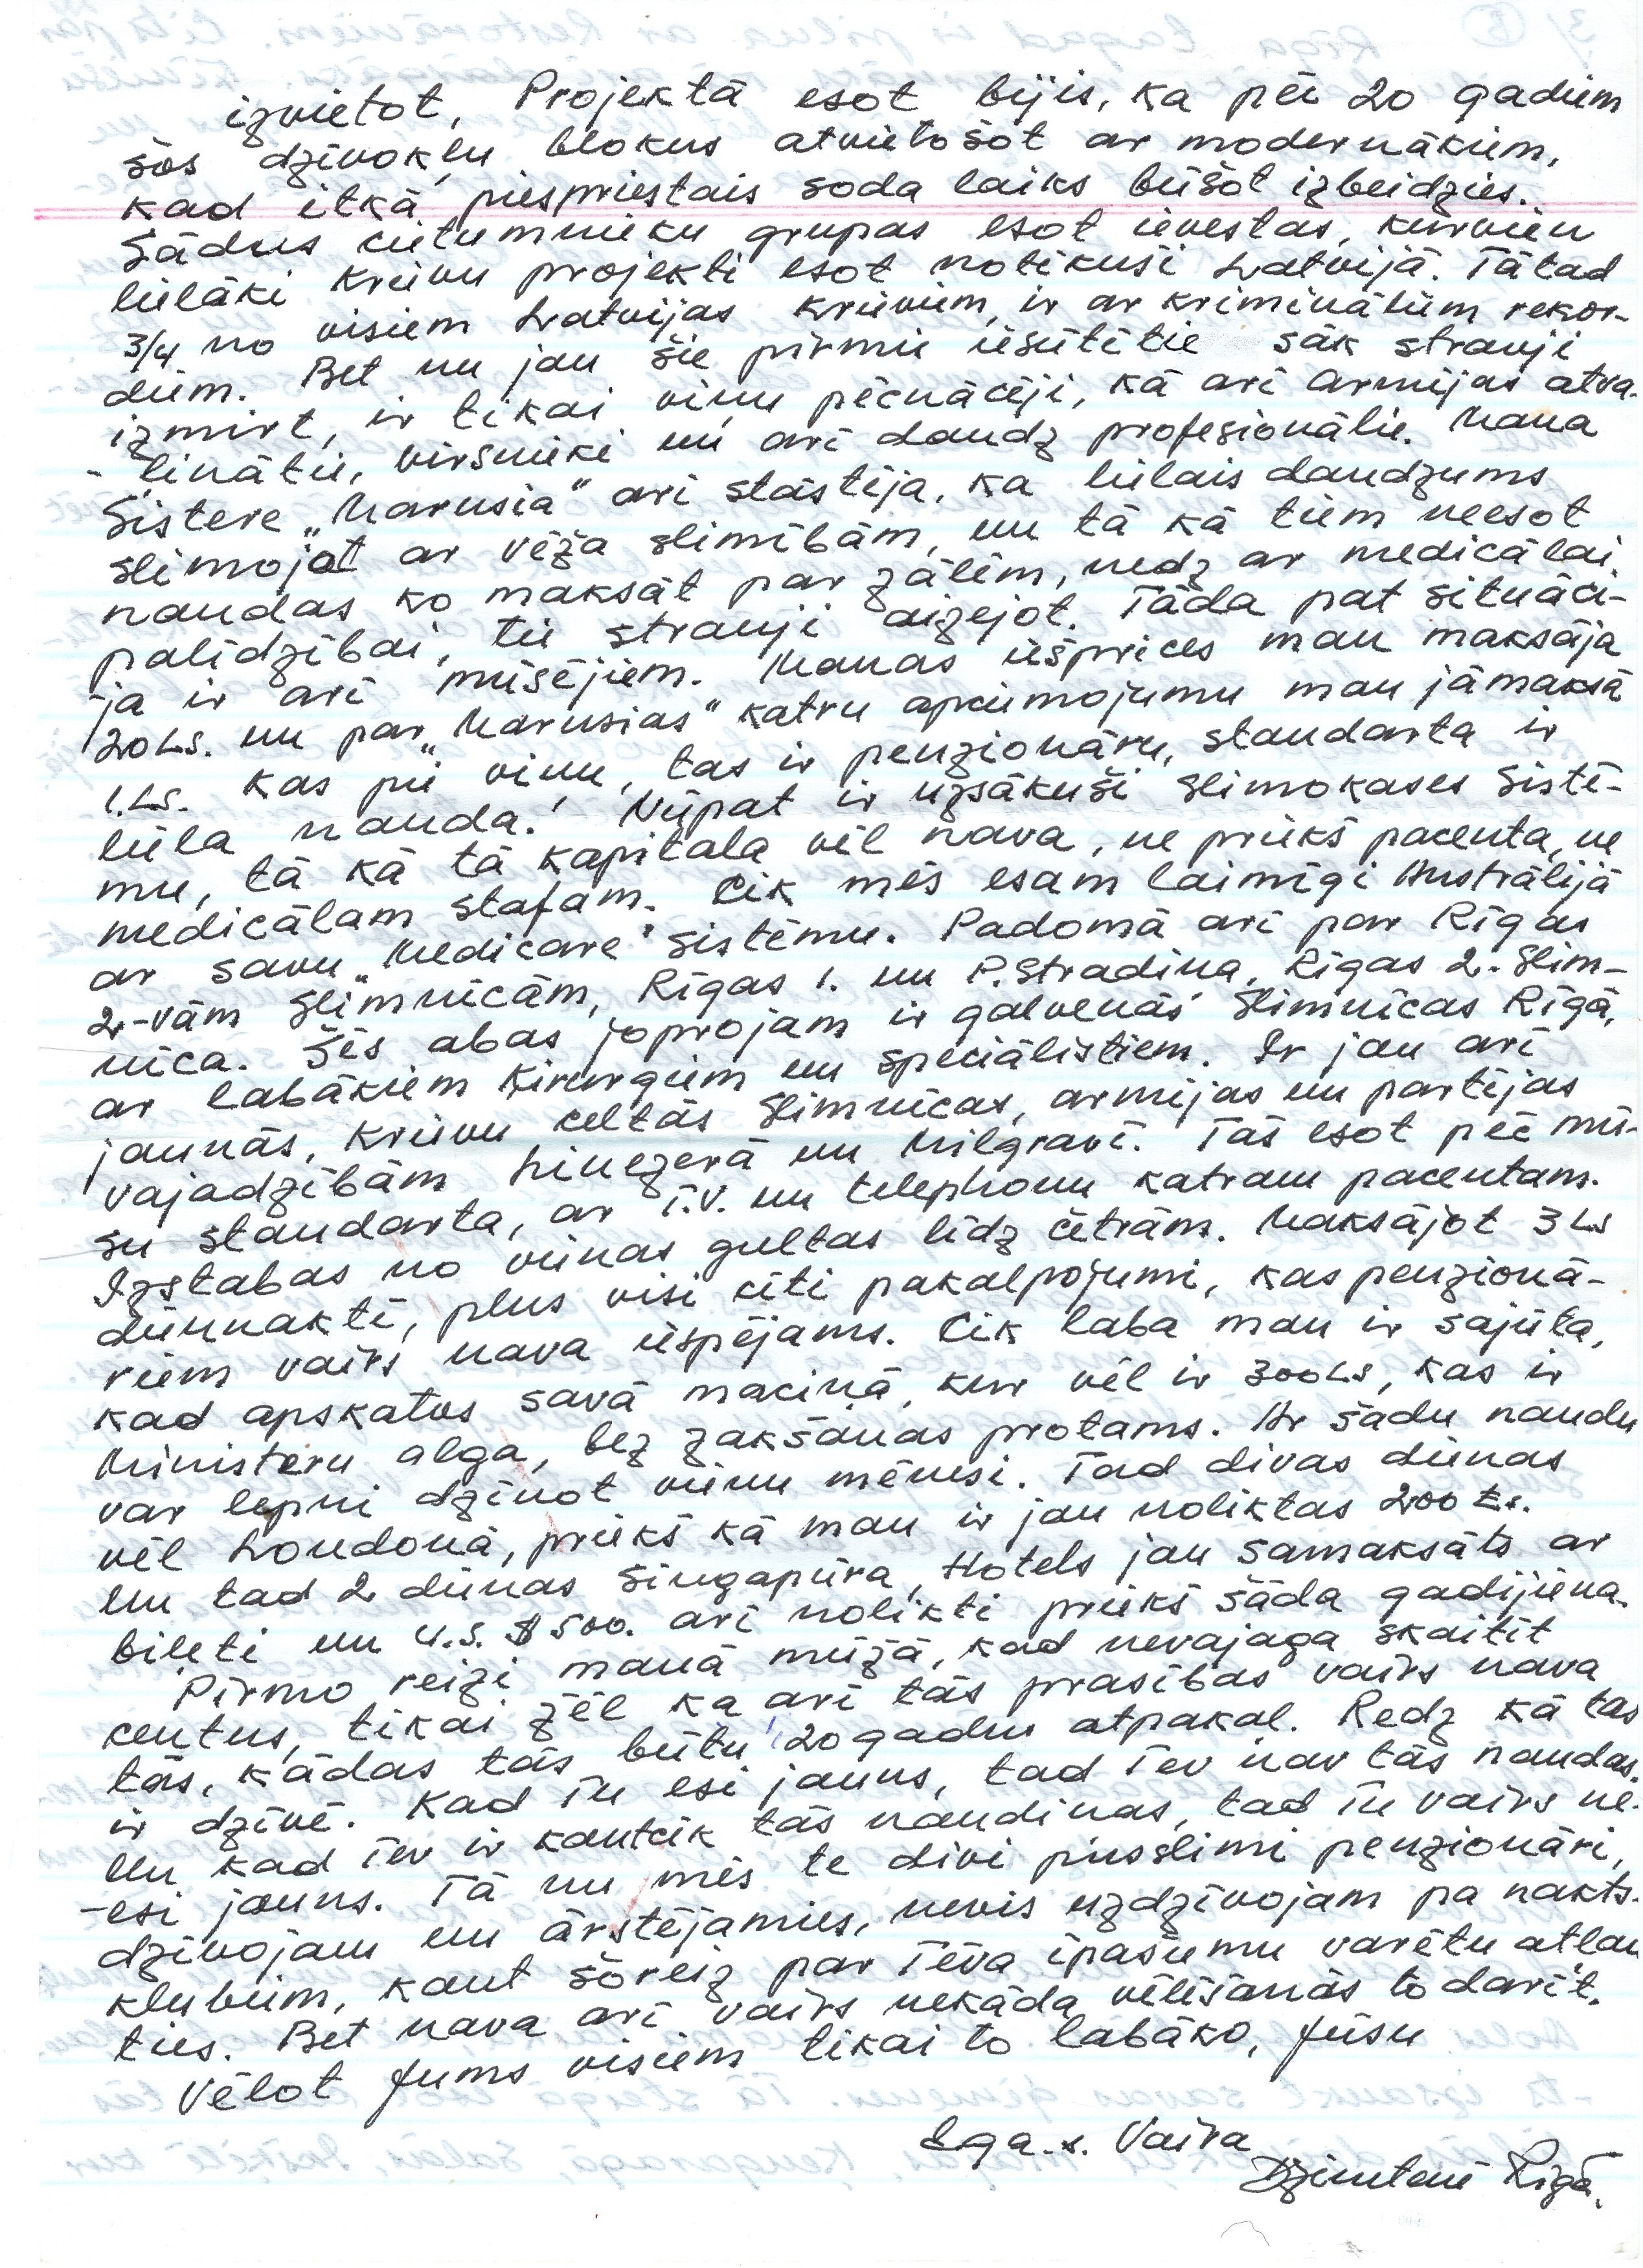 izvietot, Projektā esot bijis, ka pēc 20 gadiem
šos dzīvokļu blokus atvietošot ar modernākiem,
kad itkā piespriestais soda laiks būšot izbeidzies.
Šādus cietumnieku grupas esot ievestas, kurvien
lielāki krievu projekti esot notikuši Latvijā. Tātad
3/4 no visiem Latvijas krieviem, ir ar kriminālām rekor-
diem. Bet nu jau šie pirmie iesūtītie sāk strauji
izmirt, ir tikai viņu pēcnācēji, kā arī armijas atva-
-ļinātie, virsnieki un arī daudz profesionālie. Mana
Sistere „Marusia" arī stāstīja, ka lielais daudzums
slimojot ar vēža slimībām, un tā kā tiem neesot
naudas ko maksāt par zālēm, nedz ar medicālai
palīdzībai, tie strauji aizejot. Tāda pat situāci-
ja ir arī mūsējiem. Manas iešprices man maksāja
20 Ls. un par „Marusias" katru apciemojumu man jāmaksā
1.Ls. Kas pie viņu, tas ir penzionāru, standarta ir
liela nauda! Nupat ir uzsākuši slimokases sistē-
mu, tā kā tā kapitala vēl nava, ne priekš pacenta, ne
medicālam stafam. Cik mēs esam laimīgi Austrālijā
ar savu „Medicare" sistēmu. Padomā arī par Rīgas
2-vām slimnīcām, Rīgas 1. un P. Stradiņa, Rīgas 2. Slim-
nīca. Šīs abas joprojam ir galvenās slimnīcas Rīgā,
ar labākiem kirurgiem un speciālistiem. Ir jau arī
jaunās, krievu celtās slimnīcas, armijas un partijas
vajadzībām Linezerā un Milgravī. Tās esot pēc mū-
su standarta, ar T.V. un telephonu katram pacentam.
Izstabas no vienas gultas līdz četrām. Maksājot 3 Ls
diennaktī, plus visi citi pakalpojumi, kas penzionā-
riem vairs nava iespējams. Cik laba man ir sajūta,
kad apskatos savā maciņā, kur vēl ir 300 Ls, kas ir
Ministeru alga, bez zakšanas protams. Ar šādu naudu
var lepni dzīvot vienu mēnesi. Tad divas dienas
vēl Londonā, priekš kā man ir jau noliktas 200 £s.
Un tad 2 dienas Singapūra, Hotels jau samaksāts ar
bileti un U.S. $ 500. arī nolikti priekš šāda gadijiena.
Pirmo reizi manā mūžā, kad nevajaga skaitīt
centus, tikai žēl ka arī tās prasības vairs nava
tās, kādas tās būtu 20 gadus atpakaļ. Redz kā tas
ir dzīvē. Kad Tu esi jauns, tad Tev nav tās naudas.
Un kad Tev ir kautcik tās naudiņas, tad Tu vairs ne-
-esi jauns. Tā nu mēs te divi pusslimi penzionāri,
dzīvojam un ārstējamies, nevis uzdzīvojam pa nakts-
klubiem, kaut šoreiz par Tēva īpašumu varētu atļau
ties. Bet nava arī vairs nekāda vēlēšanās to darīt.
Vēlot Jums visiem tikai to labāko, Jūsu
Vaira
Dzimtenē Rīgā.